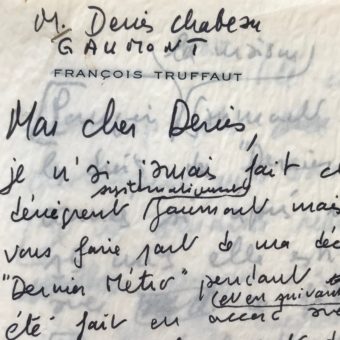 M. Denis Chateau
GAUMONT
FRANÇOIS TRUFFAUT
Mon cher Denis,
je n'ai jamais fait
systématiquement
dénigrent Gaumont mais
vous faire part de ma
"Dernier Métro" pendant
(et en suivant
été fait en accord